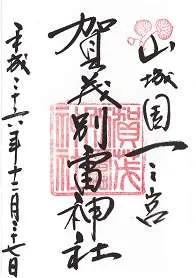 山城国一之宮
賀茂別雷神社
平成二十六年十二月二十七日